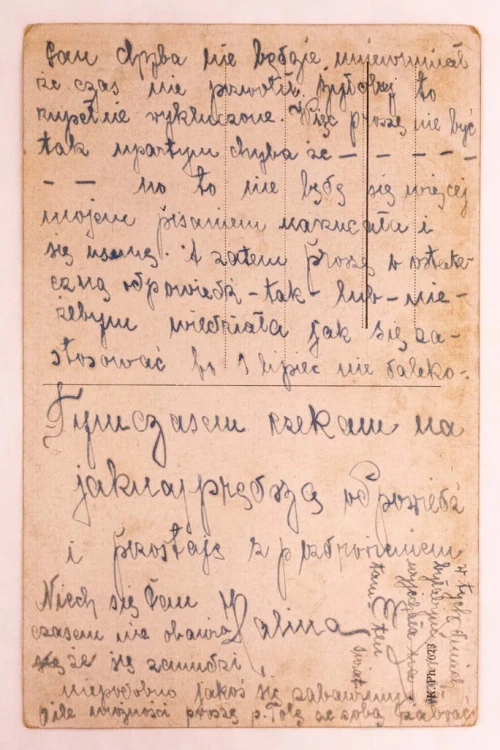 Pan chyba nie będzie
że czas nie pozwolił. to
zupełnie wykluczone. Więc proszę nie być
tak upartym chyba że – – – – –
– – no to nie będę się więcej
mojem pisaniem narzucała i
się usunę. A zatem proszę o ostate-
czną odpowiedź – tak – lub – nie –
żebym wiedziała jak się za-
stosować bo 1 lipiec nie daleko –.
Tymczasem czekam na
jaknajprędszą odpowiedź
i pozostaję z pozdrowieniem
Halina
Niech się Pan
czasem nie obawia
że się zanudzi,
niepodobno jakoś się zabawimy
o ile możności proszę p. Tolę ze sobą zabrać
w tych dniach